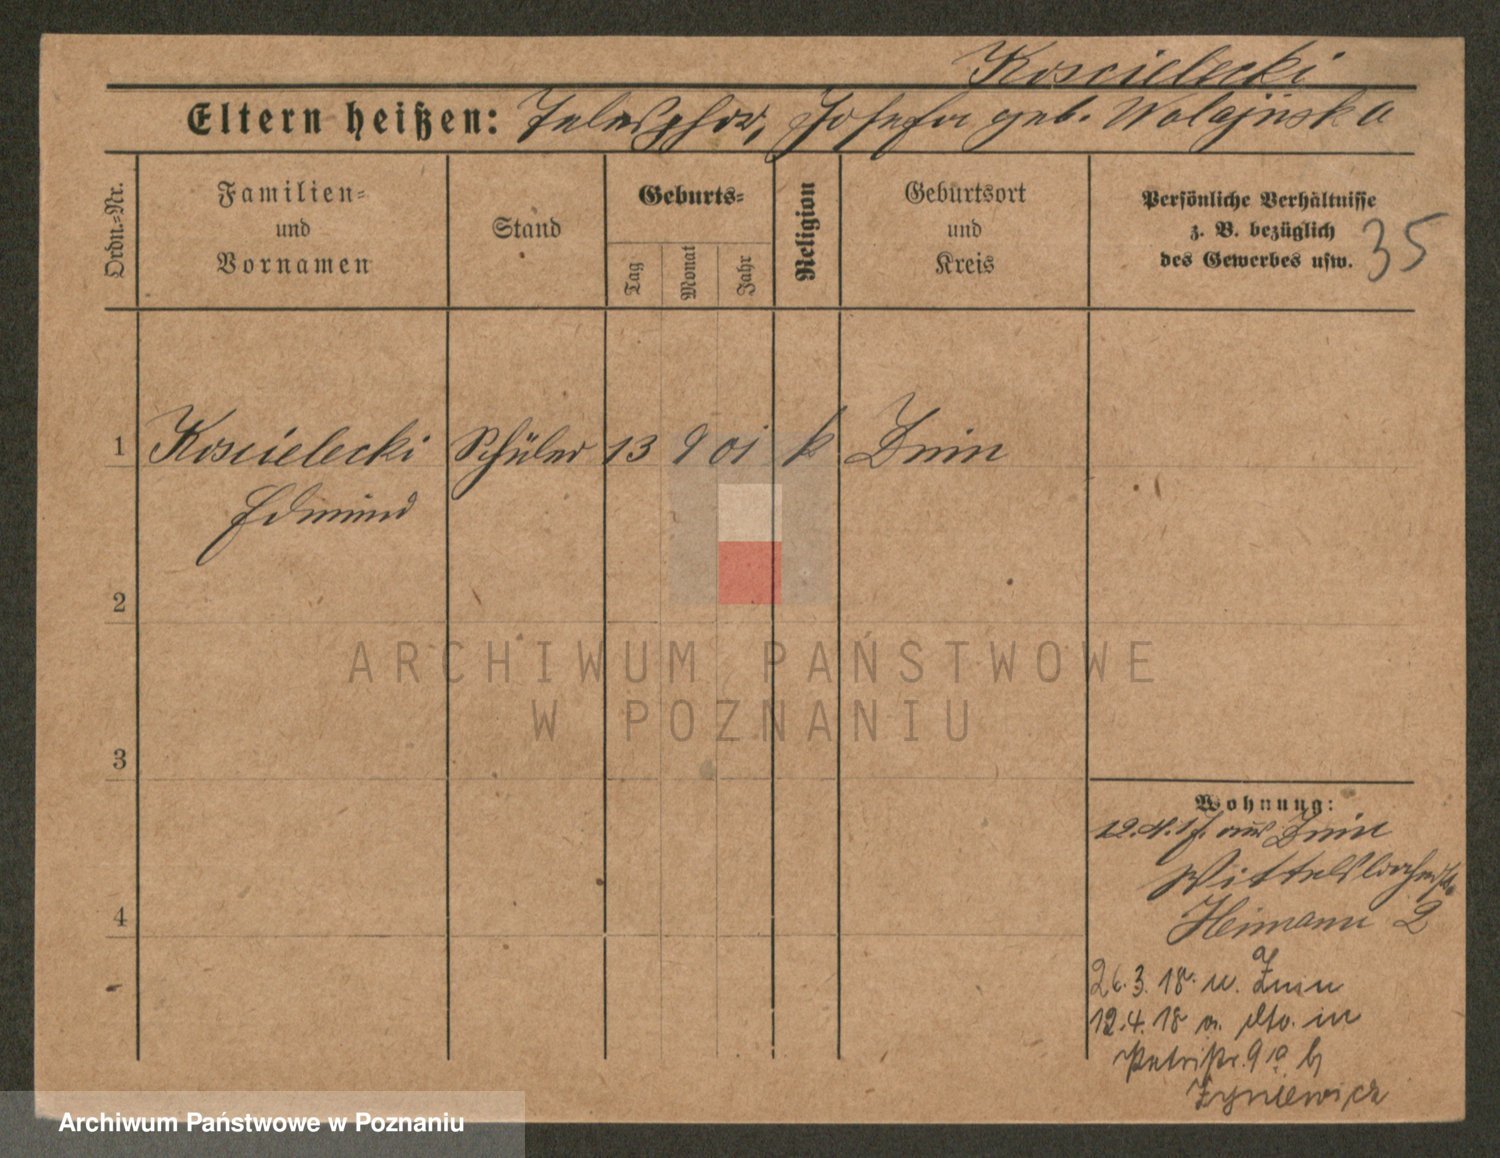 Koscielecki
Eltern heißen: Telesphor, Josefa geb. Wolajńska
Ordn.=Nr.
Familien=
und
Vornamen
Stand
Geburts=
Tag
Monat
Jahr
Religion
Geburtsort
und
Kreis
Persönliche Verhältnisse
z. B. bezüglich
des Gewerbes usw.
35
1 Koscielecki Schüler 13 9 01 k Znin
Edmund
2
3
4
ARCHIWUM PAŃSTWOWE
W POZNANIU
Wohnung:
12.4.17. aus Znin
Heimann 2
26.3.18. n. Znin
12.4.18 a. dto. in
Petristr. 9 b
Zyniewicz
Archiwum Państwowe w Poznaniu